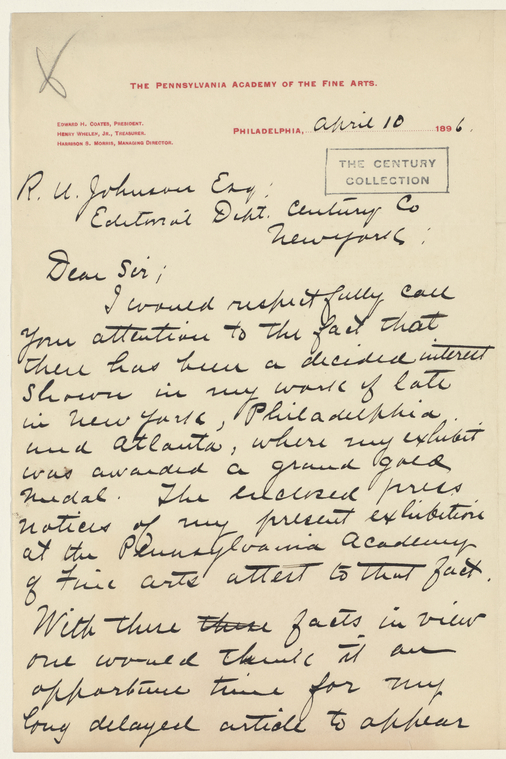 THE PENNSYLVANIA ACADEMY OF THE FINE ARTS.
EDWARD H. COATES, PRESIDENT.
HENRY WHELEN, JR., TREASURER.
HARRISON S. MORRIS, MANAGING DIRECTOR.
PHILADELPHIA, April 10 1896.
THE CENTURY
COLLECTION
R. U. Johnson Esq;
Editorial Dept. Century Co
New York;
Dear Sir;
I would respectfully call
your attention to the fact that
there has been a decided interest
shown in my work of late
in New York, Philadelphia
and Atlanta, where my exhibit
was awarded a grand gold
medal. The enclosed press
notices of my present exhibition
at the Pennsylvania Academy
of Fine Arts attest to that fact.
With these these facts in view
one would think it an
opportune time for my
long delayed article to appear